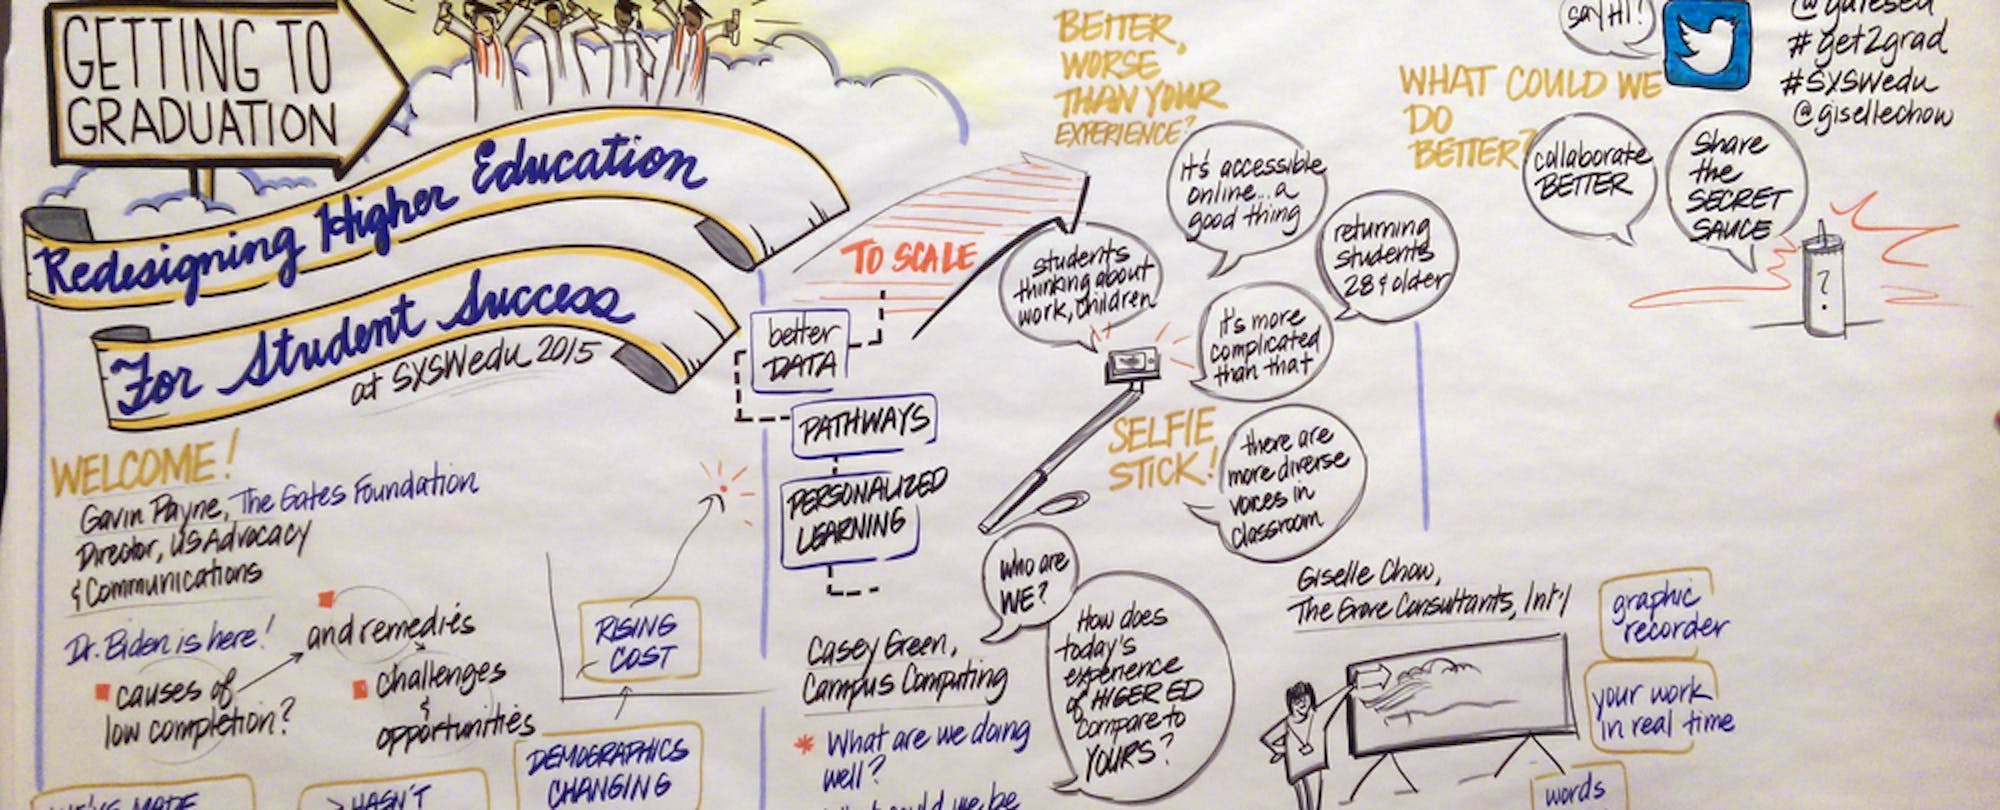 GETTING TO
GRADUATION
Redesigning Higher Education
For Student Success
at SXSWedu 2015
WELCOME!
Gavin Payne, The Gates Foundation
Director, US Advocacy
& Communications
Dr. Biden is here!
causes of
low completion?
and remedies
challenges
&
opportunities
WE'VE MADE
> HASN'T
RISING
COST
DEMOGRAPHICS
CHANGING
TO SCALE
better
DATA
PATHWAYS
PERSONALIZED
LEARNING
Casey Green,
Campus Computing
* What are we doing
well?
BETTER,
WORSE
THAN YOUR
EXPERIENCE?
It's accessible
online... a
good thing
students
thinking about
work, children
returning
students
28 & older
It's more
complicated
than that
SELFIE
STICK!
there are
more diverse
voices in
classroom
who are
WE?
How does
today's
experience
of HIGER ED
compare to
YOURS?
WHAT COULD WE
DO
BETTER?
collaborate
BETTER
Share
the
SECRET
SAUCE
?
say HI!
@gatesed
#get2grad
#SXSWedu
@gisellechow
Giselle Chow,
The Grove Consultants, Int'l
graphic
recorder
your work
in real time
words